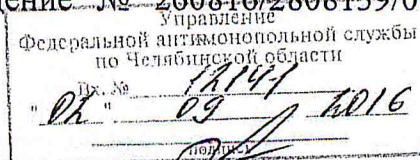 дение № 260816/2808159/0
Управление
Федеральной антимонопольной службы
по Челябинской области
Вх. № 12141
" 02 " 09 2016
подпись